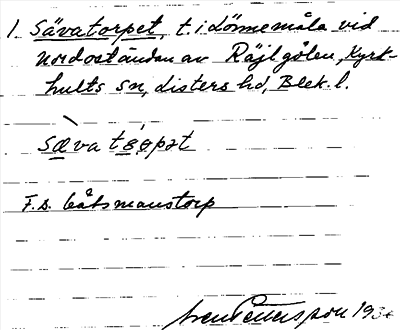 1. Sävatorpet, t. i dönnemåla vid
nordoständan av Räjlgölen, Kyrk-
hults sn, Listers hd, Blek. l.
sævatɷrpət
F.d. båtsmanstorp
Pettersson 193